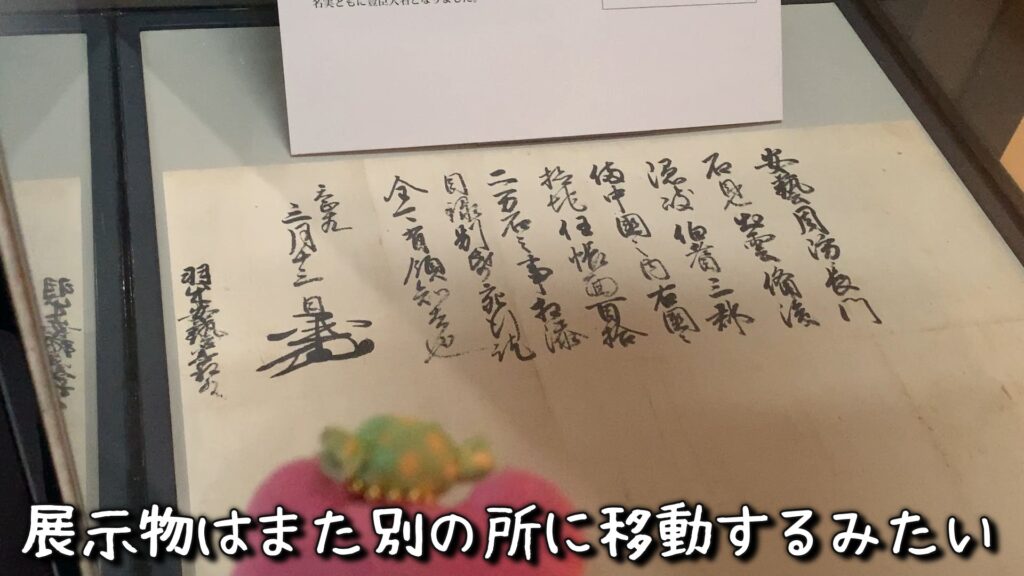 名実ともに豊臣大名となりました。
安藝周防長門
石見出雲備後
隠岐伯耆三郡
備中國之内右國々
検地任帳面百拾
二万石之事相添
目録別紙
全可有領知者也
三月十三日
羽柴安藝宰相殿
展示物はまた別の所に移動するみたい